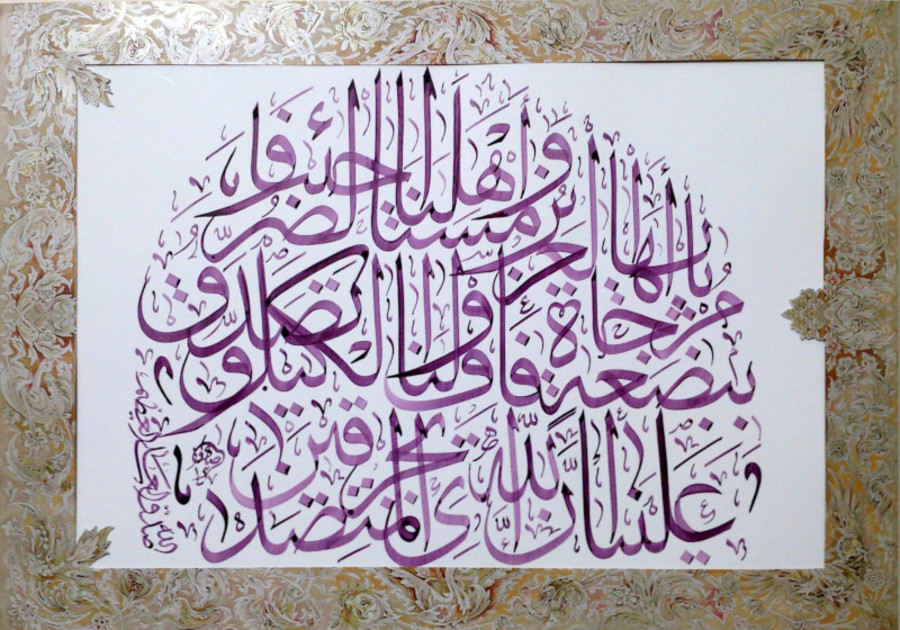 يا أيها العزيز مسنا وأهلنا الضر وجئنا
ببضعة مزجاة فأوف لنا الكيل وتصدق
علينا إن الله يجزى المتصدقين
صدق الله العلي العظيم